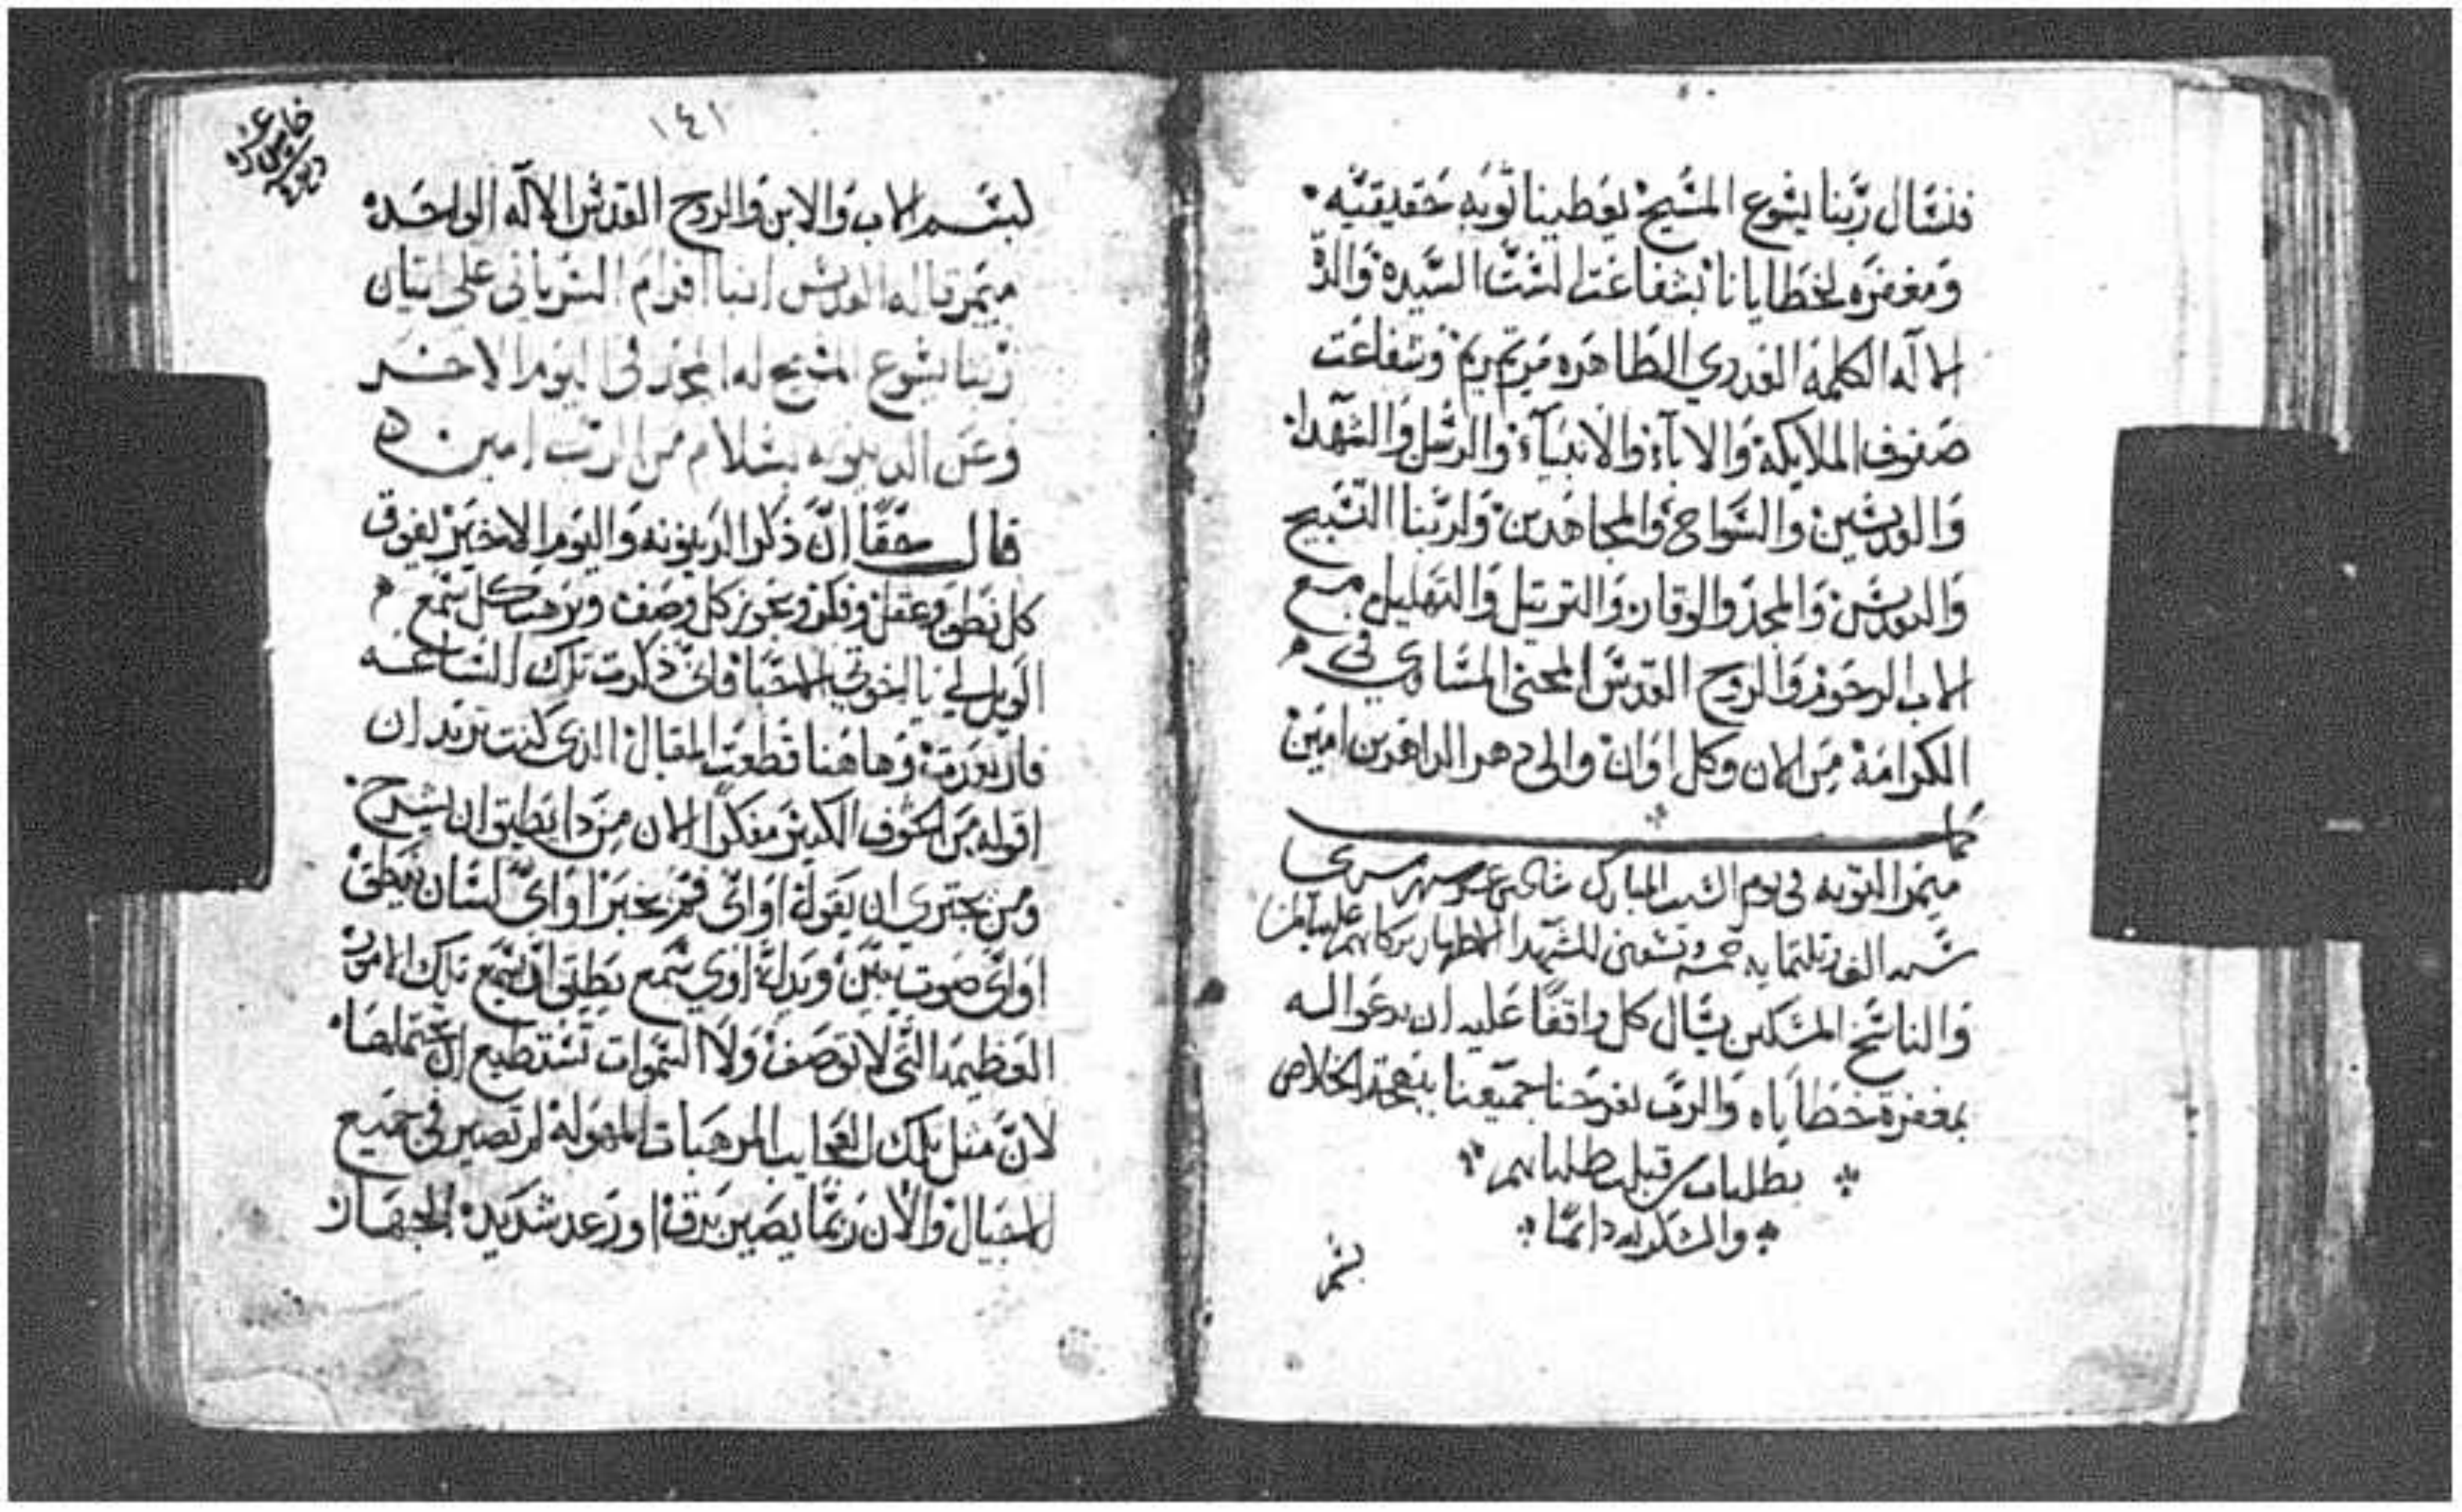 فنسال ربنا يسوع المسيح يعطينا توبه حقيقيه
ومغفره لخطايانا بشفاعت الست السيده والدة
الاله الكلمه الطاهره مرتمريم وشفاعت
صفوف الملايكة والاباء والانبياء والرسل والشهدا
والقديسين والسواح والمجاهدين ولربنا التسبيح
والتقديس والمجد والوقار والترتيل والتهليل مع
الاب الرحوم والروح القدس المحيي المساوي في
الكرامة من الان وكل اوان والى دهر الداهرين امين
كمل
ميمر التوبه في يوم السبت المبارك عشر شهر
سنه الف خمسه وتسعين للشهدا الاطهار بركاتهم علينا امين
والناسخ المسكين يسال كل واقفا عليه ان يدعوا له
بمغفرة خطاياه والرب يفرحنا جميعنا ببهجة الخلاص
بطلبات من قبلت طلباتهم
والشكر له دائما
بسم
١٤١
بسم الاب والابن والروح القدس الاله الواحد
ميمر قاله القديس انبا افرام السرياني على اتيان
ربنا يسوع المسيح له المجد في اليوم الاخير
وعن الدينونه بسلام من الرب امين
قال حقا ان ذكر الدينونه واليوم الاخير يفوق
كل نطق وعقل وفكر ويجوز كل وصف ويرهب كل سمع
الويل لي يا اخوتي الاحبا فاني ذكرت تلك الساعه
فارتعدت وهاهنا قطعت المقال الذي كنت تريد ان
اقوله من الخوف الكثير مفكرا الان من ذا يطيق ان يشرح
ومن يجتري ان يقول او اي فم يخبر او اي لسان ينطق
او اي صوت يبين ويدل او اي سمع يطيق ان يسمع تلك الامور
العظيمه التي لا توصف ولا السموات تستطيع ان تحتملها
لان مثل تلك العجايب المرهبات المهوله لم تصير في جميع
الاجيال والان ربما يصير برق او رعد شديد الجهار